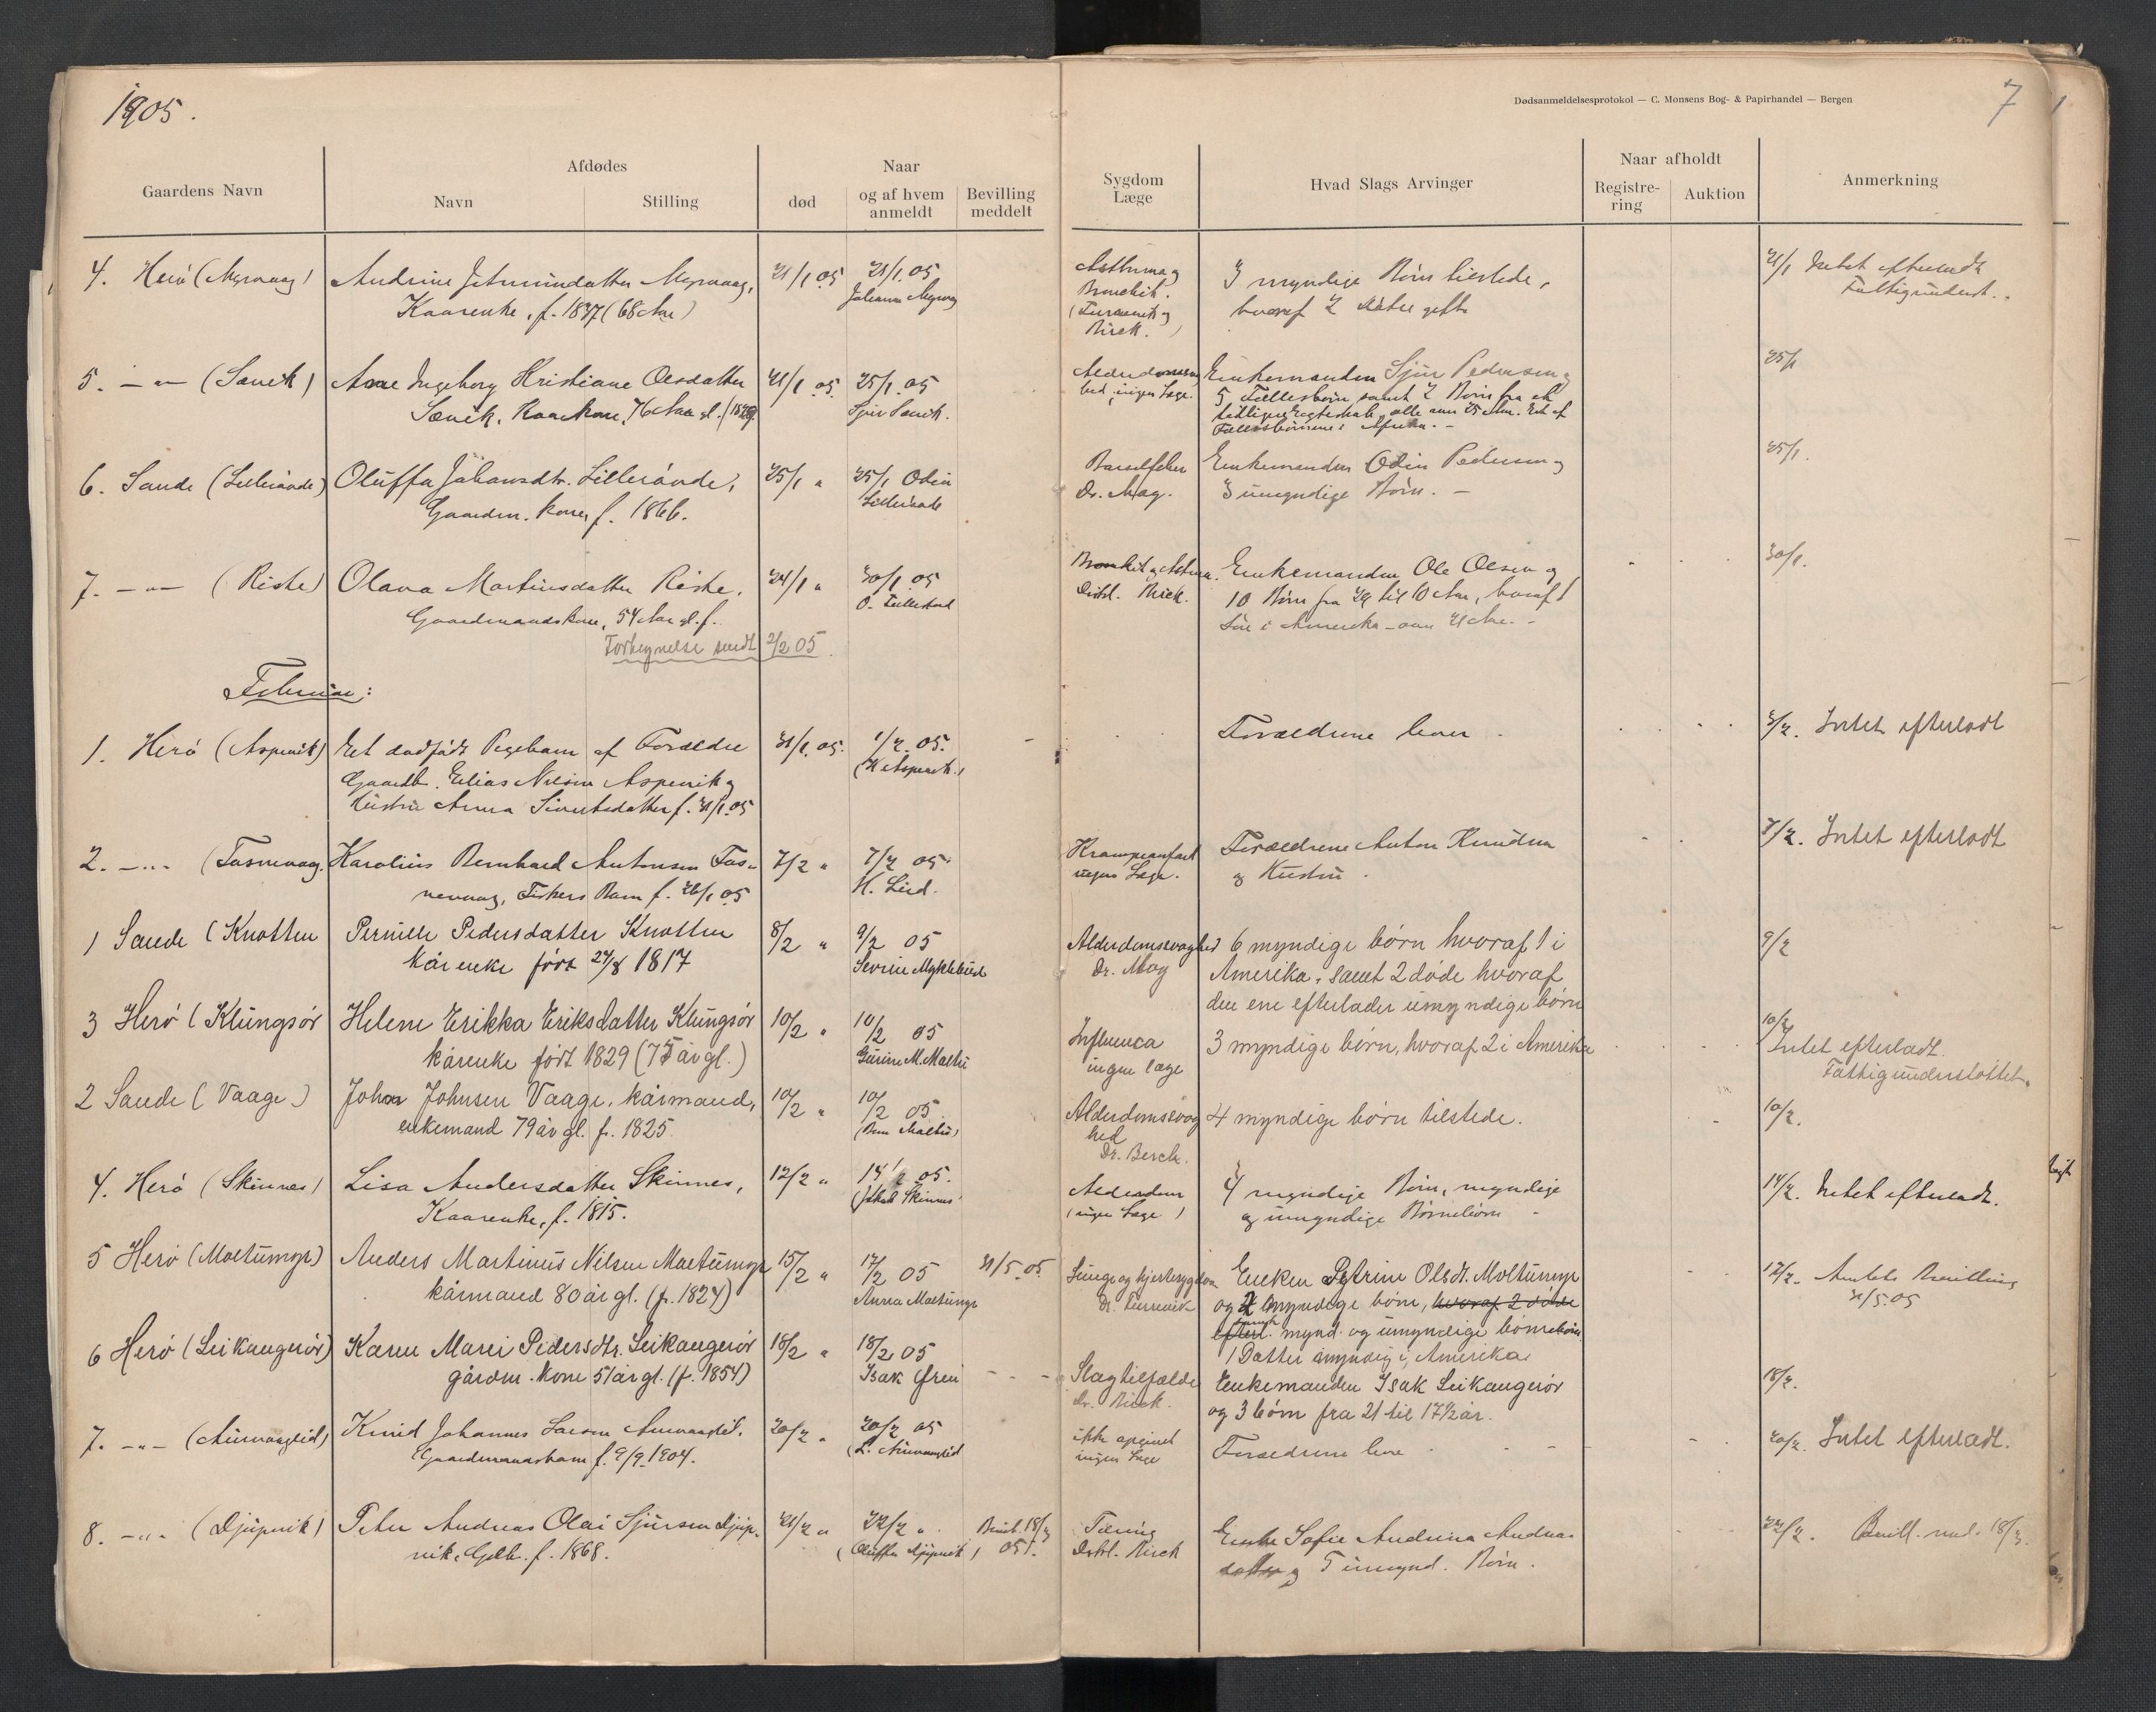 1905.
7
Dødsanmeldelsesprotokol — C. Monsens Bog- & Papirhandel — Bergen
Gaardens Navn
Afdødes
Navn
Stilling
Naar
død
og af hvem anmeldt
Bevilling meddelt
Sygdom Læge
Hvad Slags Arvinger
Naar afholdt
Registre-ring
Auktion
Anmerkning
4. Herö (Myrvaag) Andrine Myrvaag, 21/1 05 21/1 05 Asthma og 3 myndige Börn tilstede, 21/1 Intet efterladt
Kaarenke, f. 1837 (68 Aar) Johanne Myrvaag Bronchit. hvoraf 2 Döttre gifte Fattigunderst.
5. —"— (Sævik) Ane Ingeborg Kristiane Olsdatter 21/1 05. 25/1 05 Enkemanden Sjur Pedersen og 25/1
Sævik, Kaarkone, 76 Aar gl. Sjur Sævik. ingen Læge. 5 Fællesbörn samt 2 Börn fra et
tidligere Ægteskab, alle over 25 Aar. Et af
Fællesbörnene i Afrika. —
6. Sande (Lillerände) Oluffa Johansdtr. Lillerände, 25/1 " 25/1 Odin Barselfeber Enkemanden Odin Pedersen og 25/1.
Gaardm. kone, f. 1866. Dr. Mag. 3 umyndige Börn. —
7. —"— (Riste) Olava Martinsdatter Riste, 24/1 " 30/1 05 Bronkit og Astma. Enkemanden Ole Olsen og 30/1.
Gaardmandskone, 54 Aar gl. Distrl. Birck. 10 Börn fra 29 til 10 Aar, hvoraf 1
Sön i Amerika — over 21 Aar. —
sendt 2/2 05.
Februar:
1. Herö (Aspevik) Et dödfödt Pigebarn af Forældre 31/1 05. 1/2 05. Forældrene lever 3/2. Intet efterladt
Gaardb. Elias Nilsen Aspevik og (K Aspevik.)
Hustru Anna Sivertsdatter f. 31/1 05
2. —"— (Tarnevaag. Karolius Bernhard Antonsen Tar- 7/2 " 7/2 05 Krampeanfald Forældrene Anton Knudsen 7/2. Intet efterladt
nevaag, Fiskers Barn f. 26/1 05 ingen Læge. og Hustru.
1 Sande (Knotten Pernille Pedersdatter Knotten 8/2 " 9/2 05 Alderdomssvaghed 6 myndige börn hvoraf 1 i 9/2
kårenke född 27/8 1817 Severin Myklebust Dr. Mag Amerika, samt 2 döde hvoraf
den ene efterlader umyndige börn
3 Herö (Klungsör Helene Erikka Eriksdatter Klungsör 10/2 " 10/2 05 Influenca 3 myndige börn, hvoraf 2 i Amerika 10/2 Intet efterladt.
kårenke födt 1829 (75 år gl.) ingen læge Fattigunderstöttet.
2 Sande (Vaage) Johan Johnsen Vaage, kårmand, 10/2 " 10/2 05 Alderdomssvag 4 myndige börn tilstede. 10/2.
enkemand 79 år gl. f. 1825. hed
4. Herö (Skinnes) Lisa Andersdatter Skinnes, 12/2 " 14/2 05. Alderdom 4 myndige Börn, myndige 14/2. Intet efterladt.
Kaarenke, f. 1815. (Jakob Skinnes (ingen Læge) og umyndige Börnebörn —
5 Herö (Moltumyr) Anders Martinus Nilsen Moltumyr 15/2 " 17/2 05 31/5 05. Lunge og hjertesygdom Enken Petrine Olsdt. Moltumyr 17/2. Amtets Bevilling
kårmand 80 år gl. (f. 1824) Anna Moltumyr og 2 myndige börn, hvoraf 2 döde 31/5. 05
efterl. samt mynd. og umyndige börnebörn
1 Datter myndig i Amerika
6 Herö (Leikangerör) Karen Marei Pedersdtr. Leikangerör 18/2 " 18/2 05 Slagtilfælde Enkemanden Isak Leikangerör 18/2.
gårdm. kone 51 år gl. (f. 1854) Isak Dr. Birck. og 3 börn fra 21 til 17½ år.
7. —"— Knud Johannes Larsen 20/2 " 20/2 05 ikke Forældrene leve 20/2. Intet efterladt.
Gaardmandsbarn f. 9/9 1904. ingen Læge
8. —"— (Djupvik) Peter Andreas Olai Sjursen Djup- 21/2 " 22/2 " Tæring Enke Sofie Andrina Andreas 22/2. Bevill. med. 18/3.
vik, Gdbr. f. 1868. (Oluffa Djupvik) 05. Distrl. Birck datter og 5 umynd. Börn.